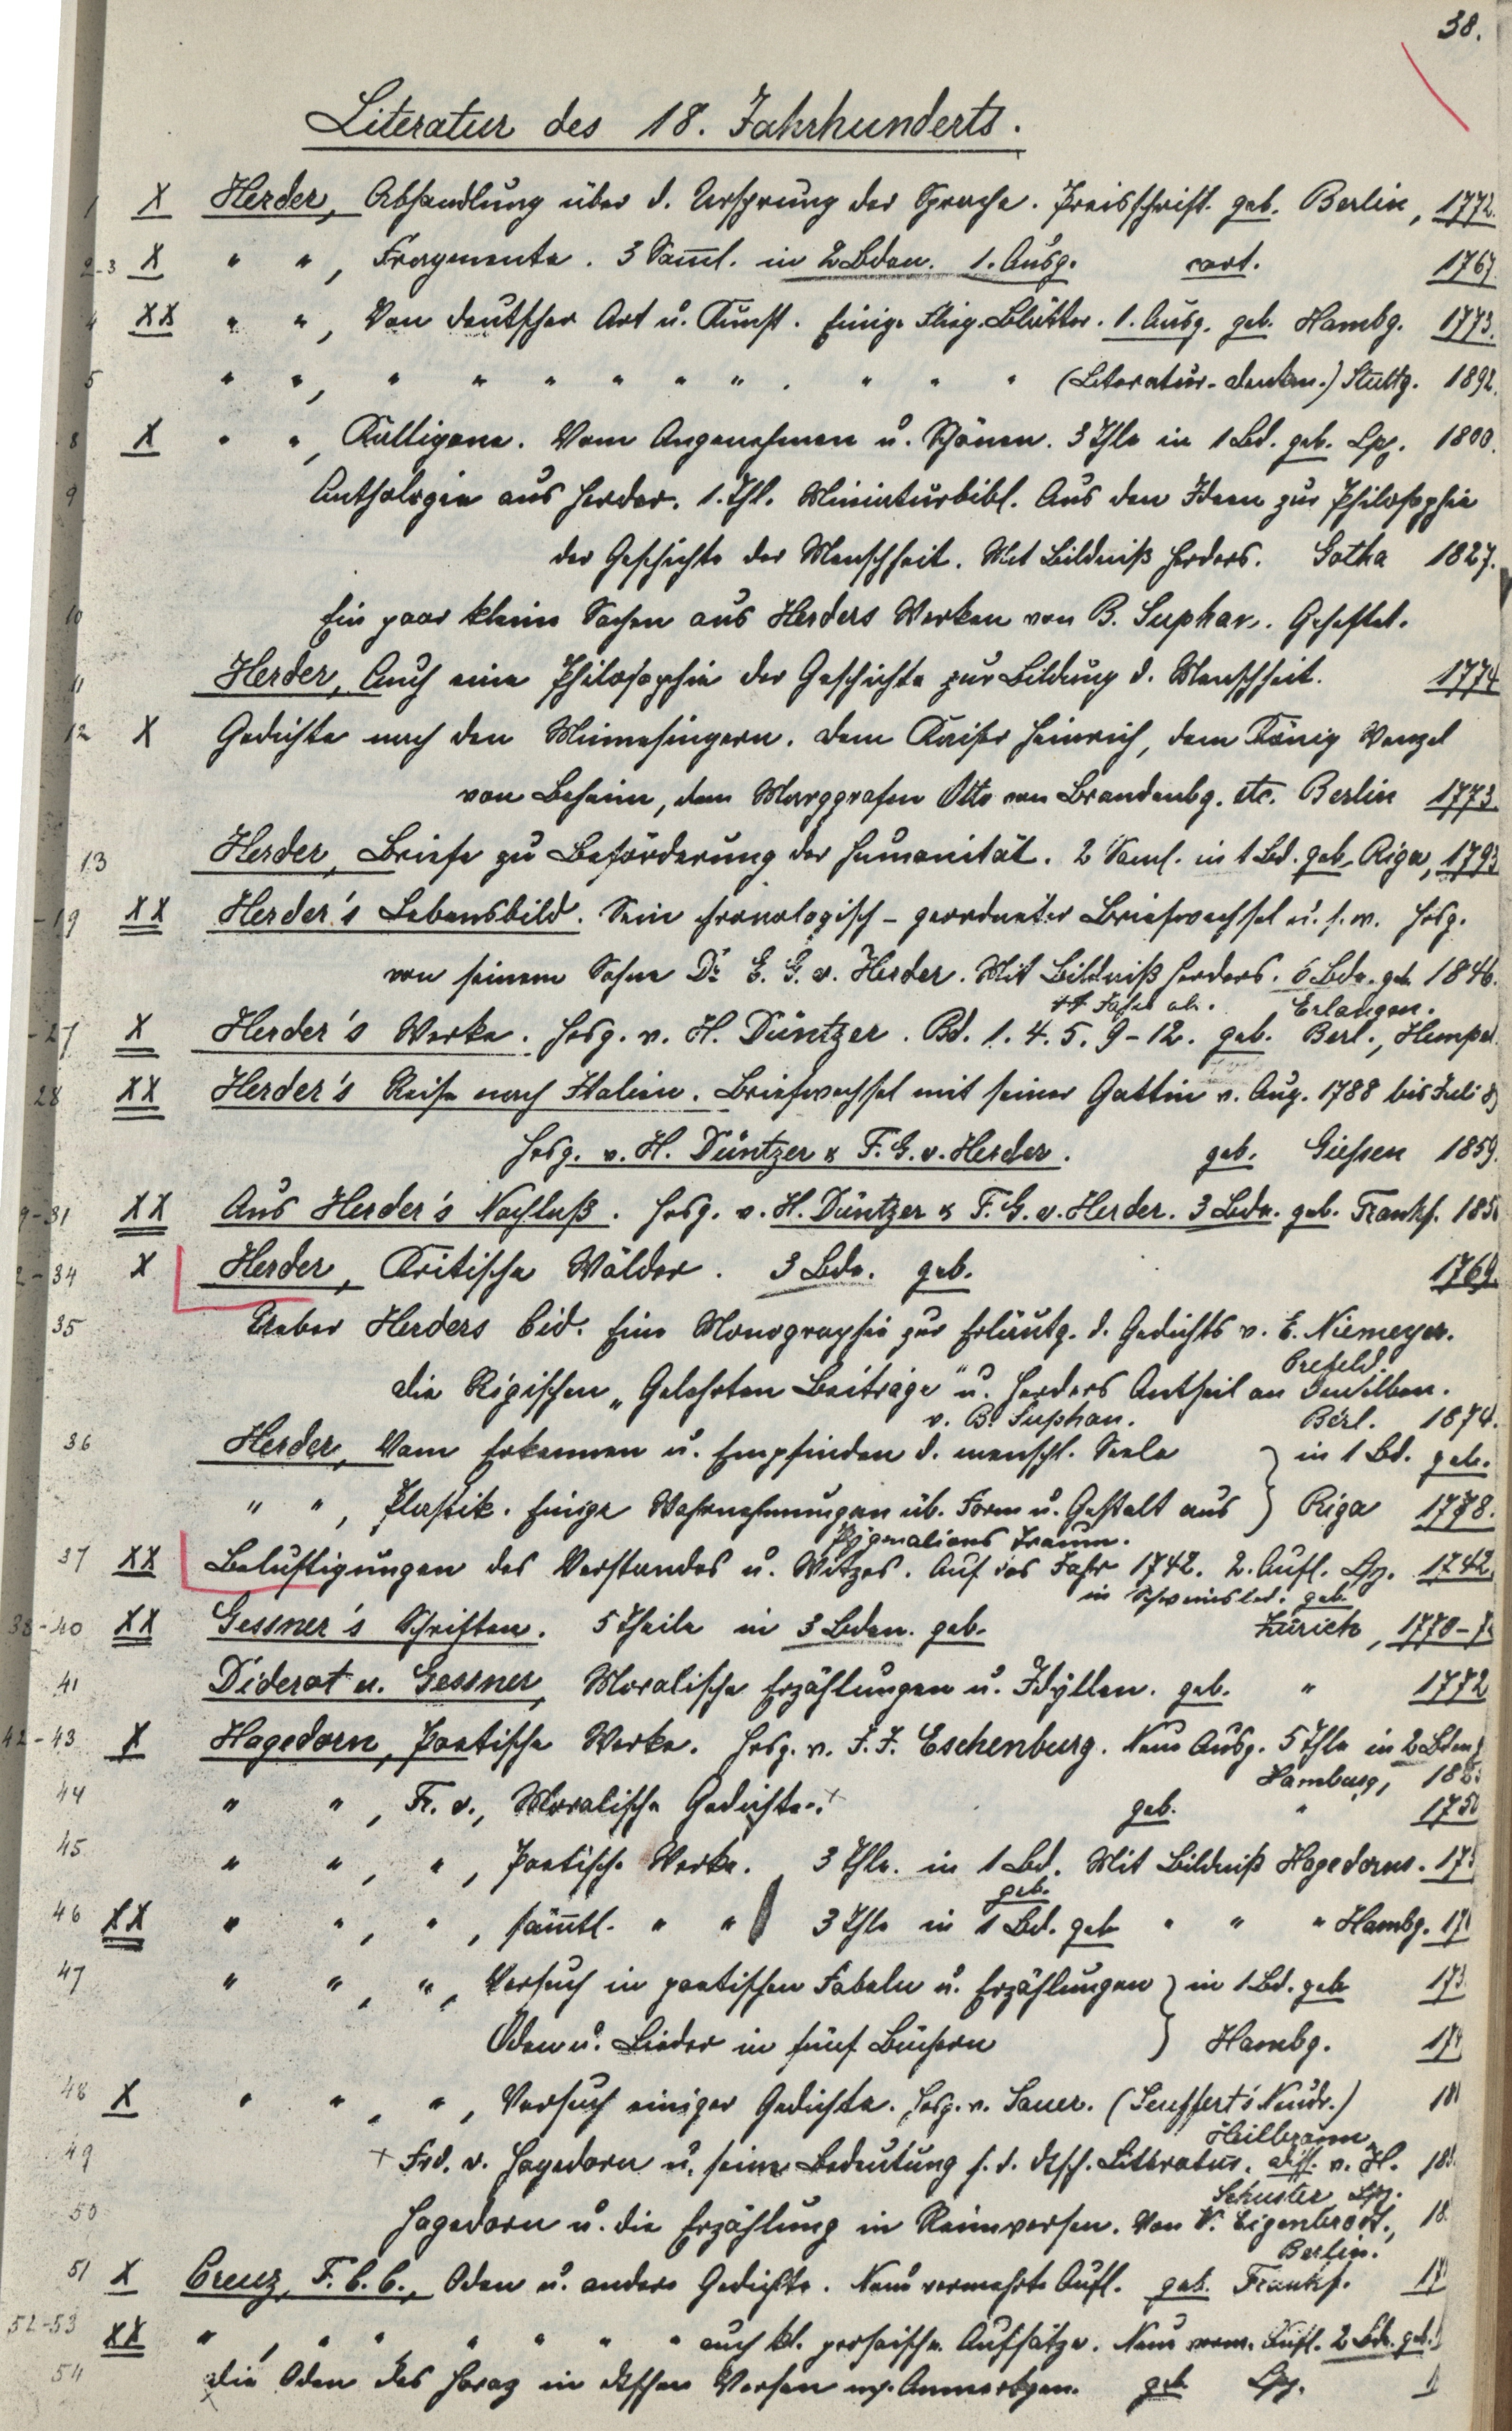 38.
Literatur des 18. Jahrhunderts.
1 X Herder, Abhandlung über d. Ursprung der Sprache. Preisschrift. geb. Berlin, 1772.
2-3 X " ", Fragmente. 3 Samml. in 2 Bden. 1. Ausg. cart. 1767
4 XX " ", Von deutscher Art u. Kunst. Einige flieg. Blätter. 1. Ausg. geb. Hambg. 1773.
5 " ", " " " " " " . " " " (Literatur-denkm.) Stuttg. 1892.
8 X " ", Kalligone. Vom Angenehmen u. Schönen. 3 Thle in 1 Bd. geb. Lpz. 1800.
9 Anthologie aus Herder. 1. Thl. Miniaturbibl. Aus den Ideen zur Philosophie
der Geschichte der Menschheit. Mit Bildniß Herders. Gotha 1827.
10 Ein paar kleine Sachen aus Herders Werken von B. Suphan. Geheftet.
11 Herder, Auch eine Philosophie der Geschichte zur Bildung d. Menschheit. 1774
12 X Gedichte nach den Minnesingern. Dem Kaiser Heinrich, dem König Wenzel
von Beheim, dem Marggrafen Otto von Brandenbg. etc. Berlin 1773.
13 Herder, Briefe zu Beförderung der Humanität. 2 Saml. in 1 Bd. geb. Riga, 1793
-19 XX Herder's Lebensbild. Sein chronologisch-geordneter Briefwechsel u. s. w. Hrsg.
von seinem Sohne Dr. E. G. v. Herder. Mit Bildniß Herders. 6 Bde. geb. 1846.
Erlangen.
-27 X Herder's Werke. Hrsg. v. H. Düntzer. Bd. 1. 4. 5. 9-12. geb. Berl., Hempel.
28 XX Herder's Reise nach Italien. Briefwechsel mit seiner Gattin v. Aug. 1788 bis Juli 89
Hrsg. v. H. Düntzer & F. G. v. Herder. geb. Giessen 1859.
9-31 XX Aus Herder's Nachlaß. Hrsg. v. H. Düntzer & F. G. v. Herder. 3 Bde. geb. Frankf. 185
2-34 X Herder, Kritische Wälder. 3 Bde. geb. 1769.
35 Ueber Herders Cid. Eine Monographie zur Erläutg. d. Gedichts v. E. Niemeyer.
Crefeld.
Die Rigischen „Gelehrten Beiträge" u. Herders Antheil an denselben.
v. B. Suphan. Berl. 1874.
36 Herder, Vom Erkennen u. Empfinden d. menschl. Seele } in 1 Bd. geb.
" ", Plastik. Einige Wahrnehmungen üb. Form u. Gestalt aus } Riga 1778.
Pygmalions Traum.
37 XX Belustigungen des Verstandes u. Witzes. Auf das Jahr 1742. 2. Aufl. Lpz. 1742.
in Schweinsled. geb.
38-40 XX Gessner's Schriften. 5 Theile in 3 Bden. geb. Zürich, 1770-7
41 Diderot u. Gessner, Moralische Erzählungen u. Idyllen. geb. " 1772
42-43 X Hagedorn, Poetische Werke. Hrsg. v. J. J. Eschenburg. Neue Ausg. 5 Thle in 2 Bden
Hamburg, 18
44 " ", Fr. v., Moralische Gedichte. geb. " 175
45 " ", ", Poetische Werke. 3 Thle. in 1 Bd. Mit Bildniß Hagedorns. 17
geb.
46 XX " ", ", sämtl. " " 3 Thle in 1 Bd. geb " " " Hambg. 17
47 " ", ", Versuch in poetischen Fabeln u. Erzählungen } in 1 Bd. geb 173
Oden u. Lieder in fünf Büchern } Hambg. 17
48 X " ", ", Versuch einiger Gedichte. Hrsg. v. Sauer. (Seuffert's Neudr.) 18
Heilbronn
49 Frd. v. Hagedorn u. seine Bedeutung f. d. dtsch. Litteratur. Diss. v. H. 18
Schuster Lpz.
50 Hagedorn u. die Erzählung in Reimversen. Von W. Eigenbrodt., 18
Berlin.
51 X Creuz, F. C. C., Oden u. andere Gedichte. Neue vermehrte Aufl. geb. Frankf. 17
52-53 XX ", " " " " " " auch kl. prosaische Aufsätze. Neue verm. Aufl. 2 Bde. geb.
54 Die Oden des Horaz in dtschen Versen m. Anmerkgen. geb Lpz. 1